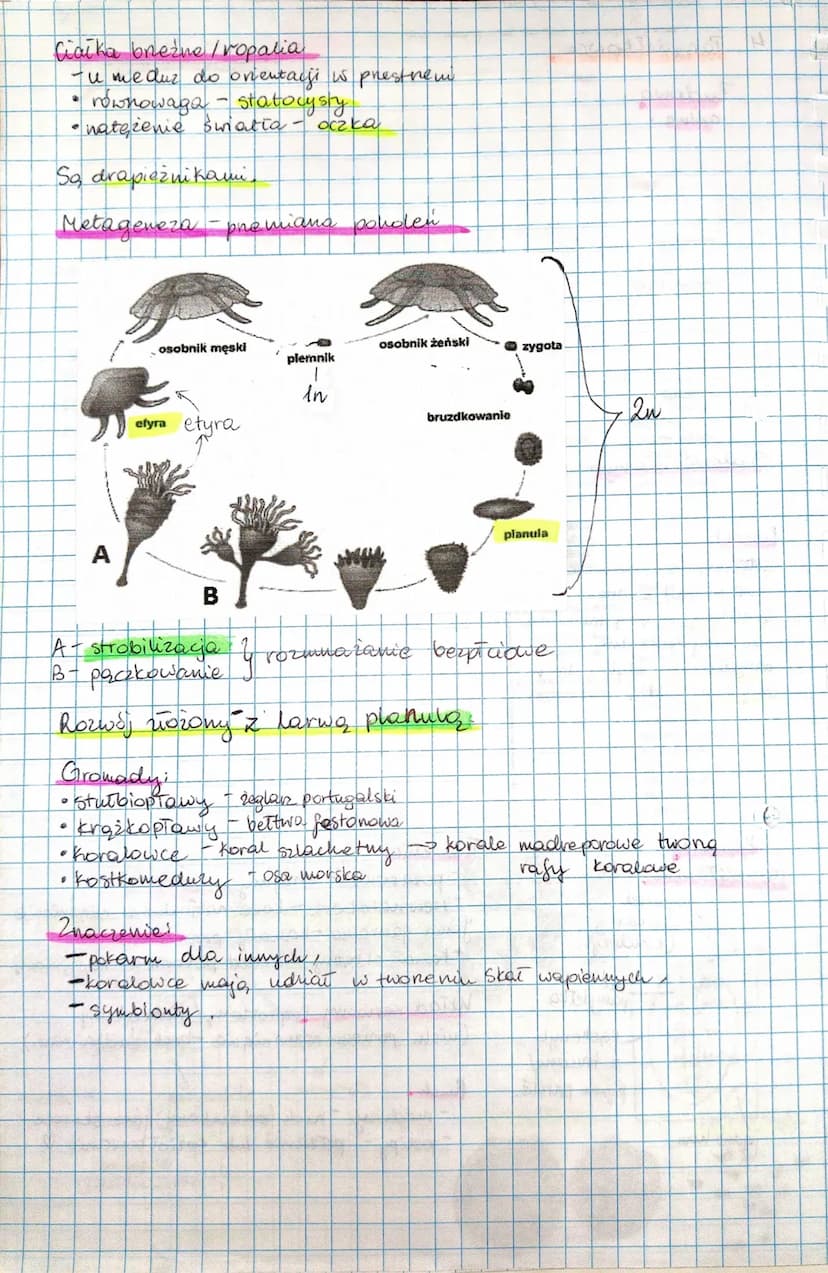 Ciałka brzeżne/ropalia
- u meduz do orientacji w przestrzeni
• równowaga - statocysty
• natężenie światła - oczka
Są drapieżnikami.
Metageneza - przemiana pokoleń
osobnik męski
plemnik
1n
osobnik żeński
zygota
bruzdkowanie
2n
efyra efyra
planula
A
B
A - strobilizacja } rozmnażanie bezpłciowe
B - pączkowanie
Rozwój złożony - z larwą planulą.
Gromady:
• stułbiopławy - żeglarz portugalski
• krążkopławy - bełtwa festonowa
• koralowce - koral szlachetny → korale madreporowe tworzą
rafy koralowe
• kostkomeduzy - osa morska
Znaczenie:
- pokarm dla innych,
- koralowce mają udział w tworzeniu skał wapiennych,
- symbionty.